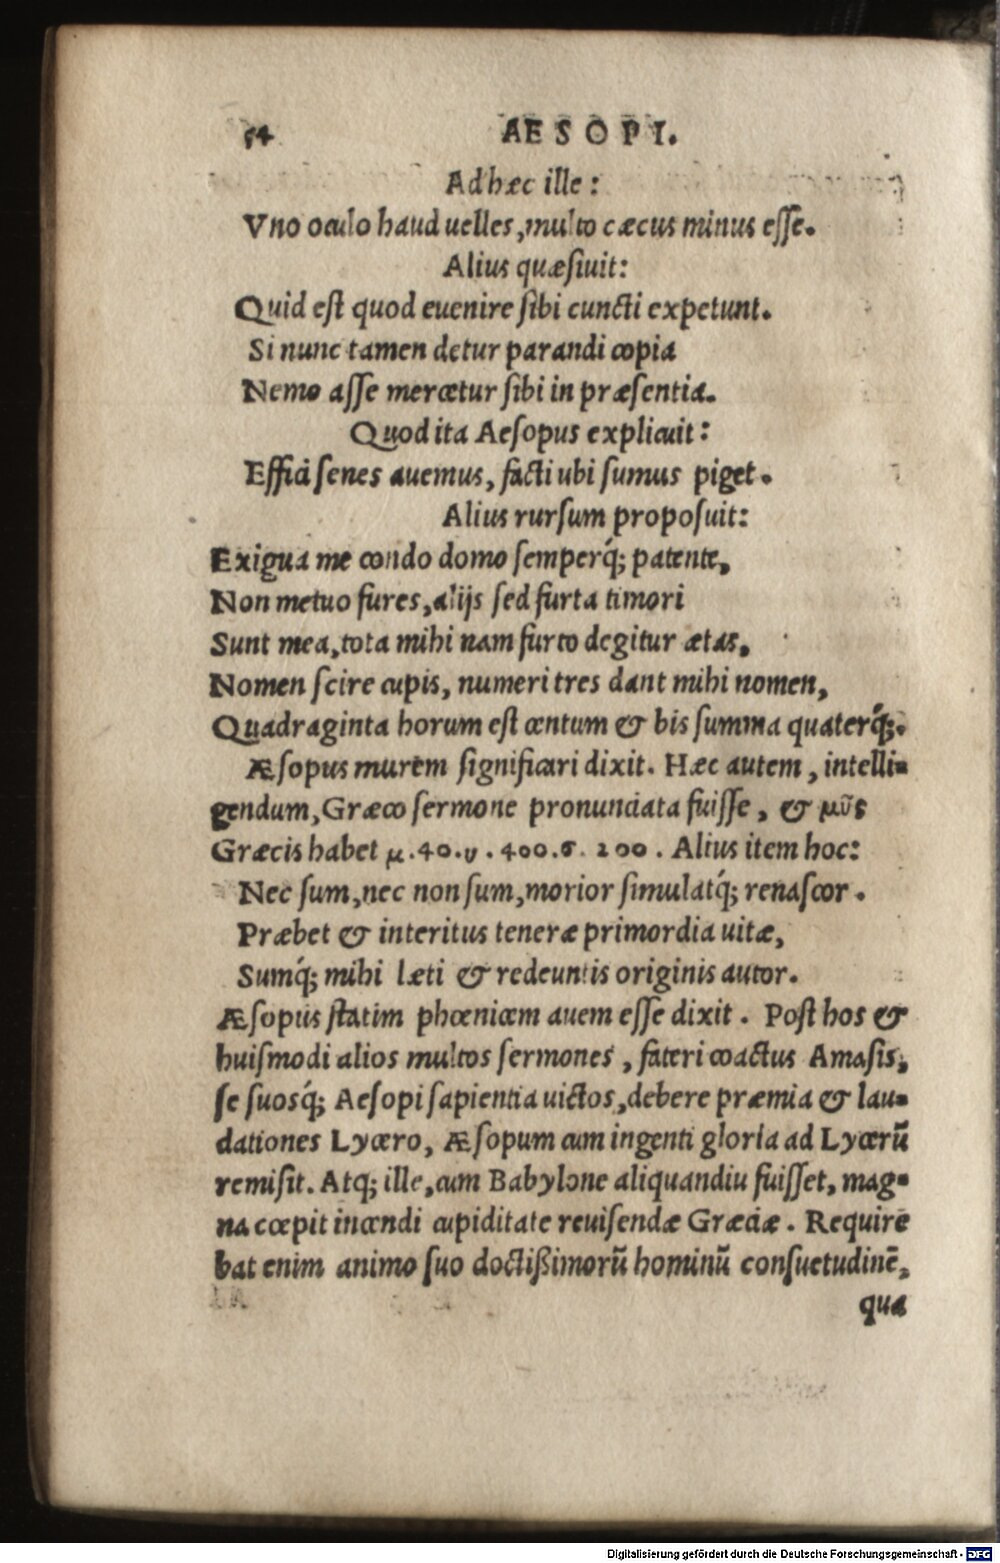 54 AESOPI.
Ad hæc ille:
Vno oculo haud uelles, multo cæcus minus esſe.
Alius quæſiuit:
Quid eſt quod euenire ſibi cuncti expetunt.
Si nunc tamen detur parandi copia
Nemo aſſe mercetur ſibi in præſentia.
Quod ita Aeſopus explicuit:
Effici ſenes auemus, facti ubi ſumus piget.
Alius rurſum propoſuit:
Exigua me condo domo ſemperq́; patente,
Non metuo fures, alijs ſed furta timori
Sunt mea, tota mihi nam furto degitur ætas,
Nomen ſcire cupis, numeri tres dant mihi nomen,
Quadraginta horum eſt centum & bis ſumma quaterq́;.
Æſopus murem ſignificari dixit. Hæc autem, intelli-
gendum, Græco ſermone pronunciata fuiſſe, & μῦς
Græcis habet μ.40.υ.400.ς.200. Alius item hoc:
Nec ſum, nec non ſum, morior ſimulatq́; renaſcor.
Præbet & interitus teneræ primordia uitæ,
Sumq́; mihi læti & redeuntis originis autor.
Æſopus ſtatim phœnicem auem eſſe dixit. Poſt hos &
huiſmodi alios multos ſermones, fateri coactus Amaſis,
ſe ſuosq́; Aeſopi ſapientia uictos, debere præmia & lau-
dationes Lycero, Æſopum cum ingenti gloria ad Lycerũ
remiſit. Atq; ille, cum Babylone aliquandiu fuiſſet, mag-
na cœpit incendi cupiditate reuiſendæ Græciæ. Require
bat enim animo ſuo doctißimorũ hominũ conſuetudinẽ,
qua
Digitalisierung gefördert durch die Deutsche Forschungsgemeinschaft - DFG